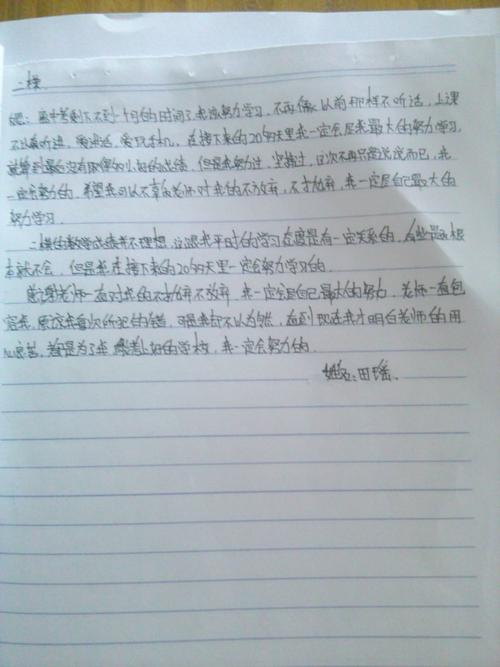 二模
吧：离中考剩下不到一个月的时间了我该努力学习，不再像以前那样不听话，上课
不认真听讲，爱讲话，爱玩手机，在接下来的20多天里我一定会尽我最大的努力学习，
就算到最后没有取得的好的成绩，但是我努力过，坚持过，这次不再只是说说而已，我
一定会努力的，希望我可以不辜负老师对我的不放弃，不抛弃，我一定尽自己最大的
努力学习。
二模的数学成绩并不理想，这跟我平时的学习态度是有一定关系的，有些题根
本就不会，但是我在接下来的20多天里一定会努力学习的。
感谢老师一直对我的不抛弃不放弃，我一定会尽自己最大的努力，老师一直包
容我，原谅我每次所犯的错，可是我却不以为然，直到现在我才明白老师的用
心良苦，都是为了我能考上好的学校，我一定会努力的。
姓名：田瑶.